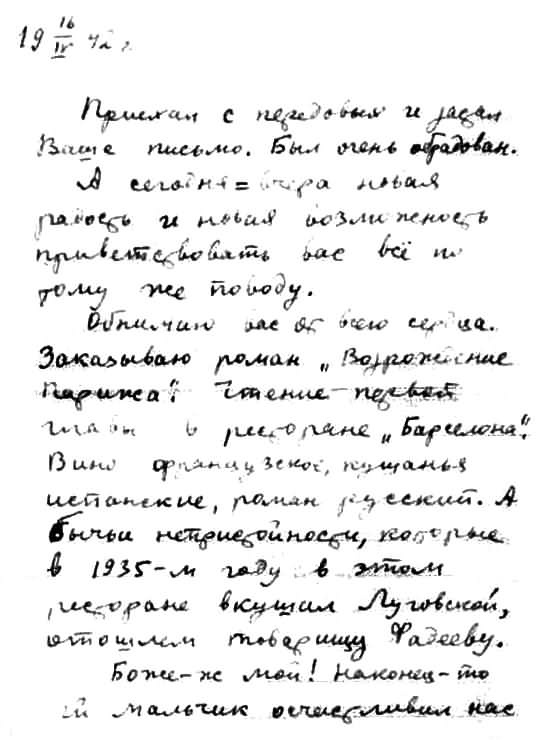 19 16/IV 42 г.
Приехал с передовых и застал
Ваше письмо. Был очень обрадован.
А сегодня = вчера новая
радость и новая возможность
приветствовать вас всё по
тому же поводу.
Обнимаю вас от всего сердца.
Заказываю роман „Возрождение
Парижа". Чтение первой
главы в ресторане „Барселона".
Вино французское, кушанья
испанские, роман русский. А
бычьи непристойности, которые
в 1935-м году в этом
ресторане вкушал Луговской,
отошлем товарищу Фадееву.
Боже-ж мой! Наконец-то
мальчик осчастливил нас